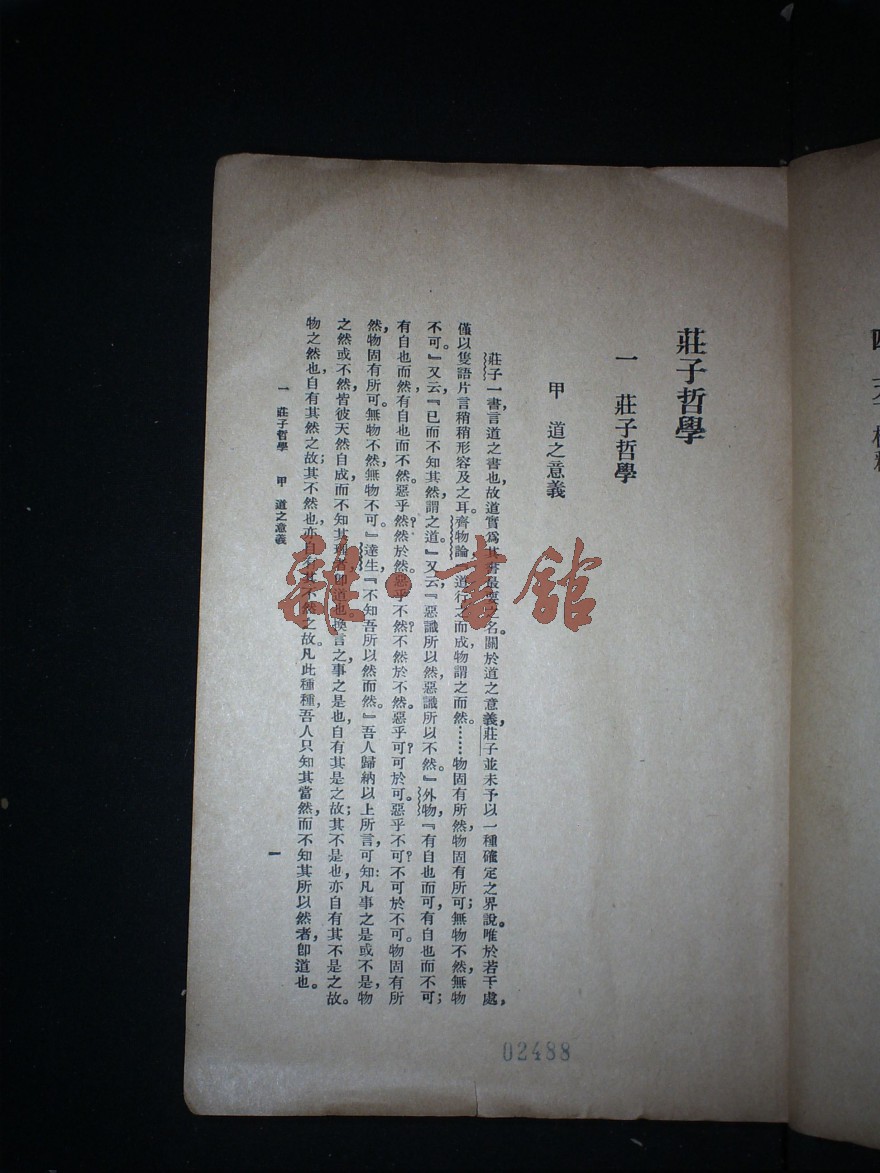 莊子哲學
一　莊子哲學
甲　道之意義
莊子一書，言道之書也，故道實爲其書最要之名。關於道之意義，莊子並未予以一種確定之界說。唯於若干處，
僅以隻語片言稍稍形容及之耳。齊物論，『道行之而成，物謂之而然。……物固有所然，物固有所可；無物不然，無物
不可。』又云『已而不知其然，謂之道。』又云『惡識所以然，惡識所以不然。』外物，『有自也而可，有自也而不可；
有自也而然，有自也而不然。惡乎然？然於然。惡乎不然？不然於不然。惡乎可？可於可。惡乎不可？不可於不可。物固有所
然，物固有所可。無物不然，無物不可。』達生『不知吾所以然而然。』吾人歸納以上所言，可知：凡事之是或不是，物
之然或不然，皆彼天然自成，而不知其理者，即道也。換言之，事之是也，自有其是之故；其不是也，亦自有其不是之故。
物之然也，自有其然之故；其不然也，亦自有其不然之故。凡此種種，吾人只知其當然，而不知其所以然者，即道也。
一　莊子哲學　甲　道之意義
一
02488
雜·書館